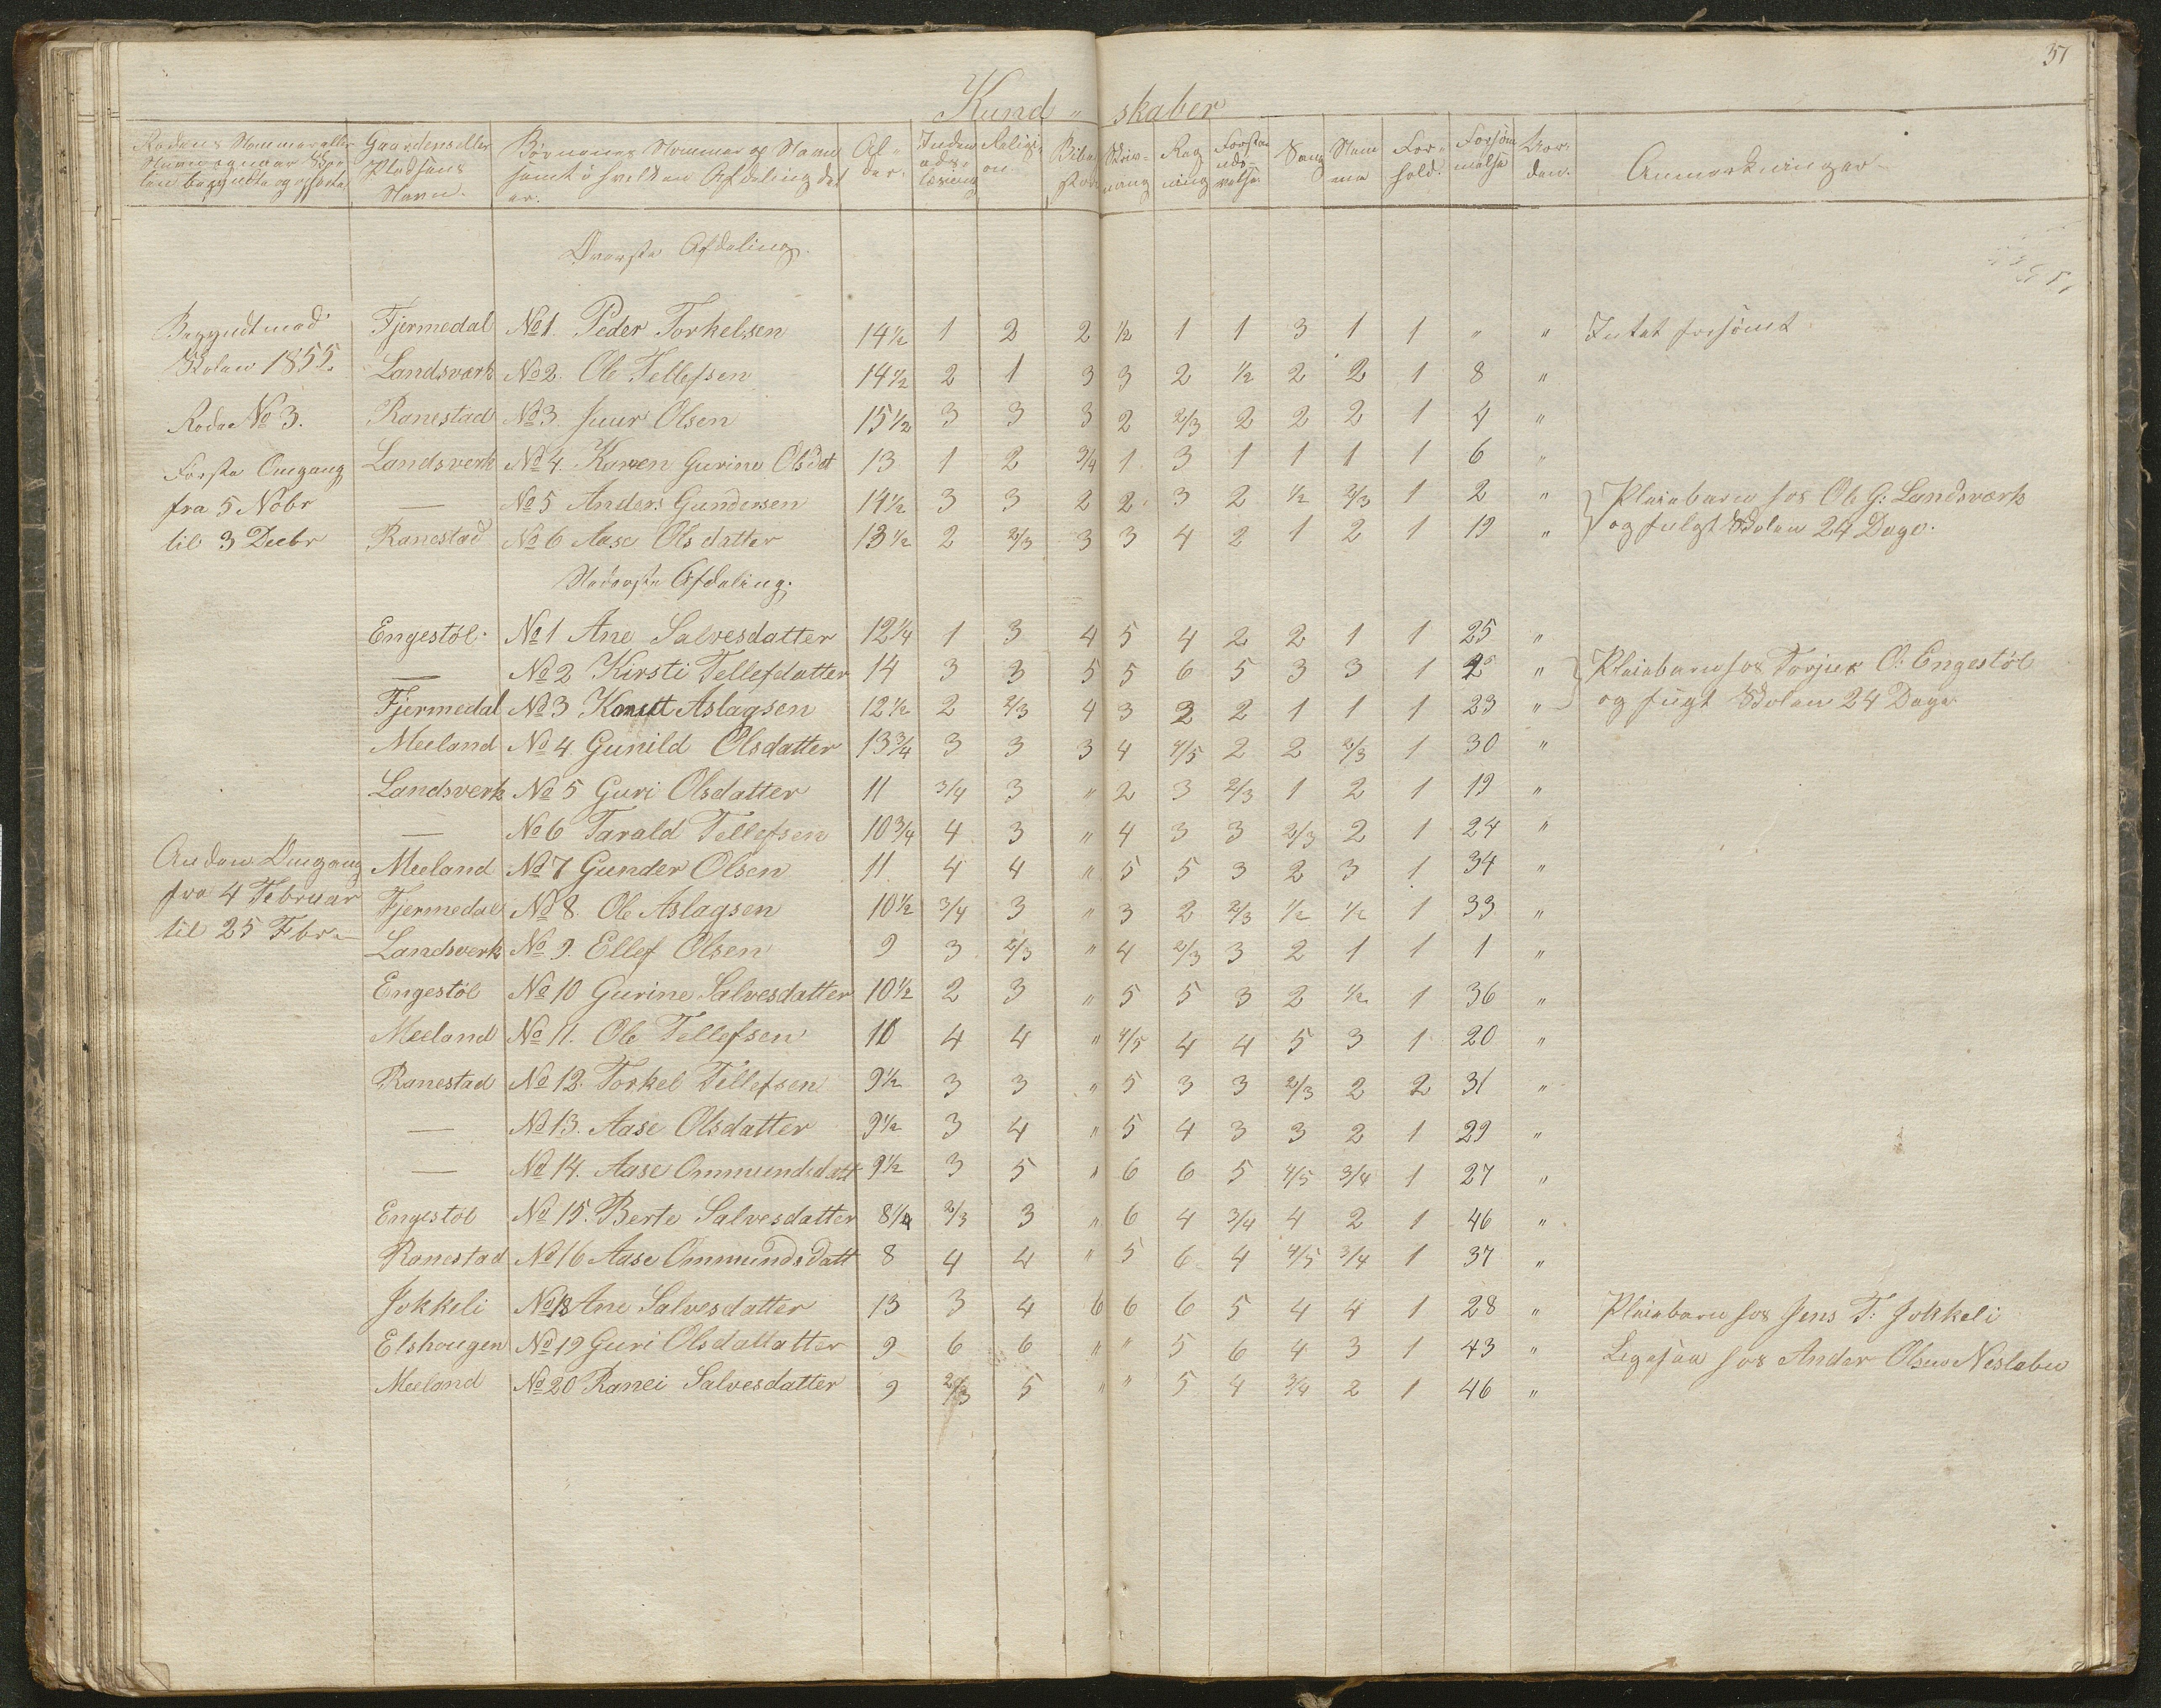 37
Kund " skaber
Rodens Nommer eller Navn og naar Sko- len begyndte og ophørte
Gaardens eller Pladsens Navn.
Børnenes Nommer og Navn samt i hvilken Afdeling det er.
Al- der.
Inden- ads- læsning
Religi- on
Skriv- ning
Reg ning
Forstan- ds- øvelse
Sang
For- hold.
Forsøm- melse
Anmærkninger
Øverste Afdeling.
Begyndt med Fjermedal No 1. Peder Torkelsen 14½ 1 2 2 ½ 1 1 3 1 1 " " Intet forsømt.
Skolen 1855. Landsværk No 2. Ole Tellefsen 14½ 2 1 3 3 2 ½ 2 2 1 8 "
Rode No 3. Ranestad No 3. Juur Olsen 15½ 3 3 3 2 2/3 2 2 2 1 4 "
Første Omgang Landsverk No 4. Karen Gurine Olsdat 13 1 2 3/4 1 3 1 1 1 1 6 "
fra 5 Nobr — No 5 Anders Gundersen 14½ 3 3 2 2 3 2 ½ 2/3 1 2 " Pleiebarn hos Ole G: Landsværk
til 3 Decbr Ranestad No 6 Aase Olsdatter 13½ 2 2/3 3 3 4 2 1 2 1 19 " og fulgt Skolen 24 Dage.
Nederste Afdeling.
Engestøl No 1 Ane Salvesdatter 12¼ 1 3 4 5 4 2 2 1 1 25 "
— No 2 Kirsti Tellefdatter 14 3 3 5 5 6 5 3 3 1 25 " Pleiebarn hos Torjus O: Engestøl
Fjermedal No 3 Knutt Aslagsen 12½ 2 2/3 4 3 2 2 1 1 1 23 " og fugt Skolen 24 Dage
Meeland No 4 Gunild Olsdatter 13¾ 3 3 3 4 4/5 2 2 2/3 1 30 "
Landsverk No 5 Guri Olsdatter 11 3/4 3 " 2 3 2/3 1 2 1 19 "
— No 6 Tarald Tellefsen 10¾ 4 3 " 4 3 3 2/3 2 1 24 "
Anden Omgang Meeland No 7 Gunder Olsen 11 4 4 " 5 5 3 2 3 1 34 "
fra 4 Februar Fjermedal No 8. Ole Aslagsen 10½ 3/4 3 " 3 2 2/3 ½ ½ 1 33 "
til 25 Fbr. Landsverk No 9. Ellef Olsen 9 3 2/3 " 4 2/3 3 2 1 1 1 "
Engestøl No 10 Gurine Salvesdatter 10½ 2 3 " 5 5 3 2 ½ 1 36 "
Meeland No 11. Ole Tellefsen 10 4 4 " 4/5 4 4 5 3 1 20 "
Ranestad No 12. Torkel Tellefsen 9½ 3 3 " 5 3 3 2/3 2 2 31 "
— No 13. Aase Olsdatter 9½ 3 4 " 5 4 3 3 2 1 29 "
— No 14. Aase Ommundsdatt 9½ 3 5 " 6 6 5 4/5 3/4 1 27 "
Engestøl No 15. Berte Salvesdatter 8¼ 2/3 3 " 6 4 3/4 4 2 1 46 "
Ranestad No 16 Aase Ommundsdatt 8 4 4 " 5 6 4 4/5 3/4 1 37 "
Jokkeli No 18 Ane Salvesdatter 13 3 4 6 6 6 5 4 4 1 28 " Pleiebarn hos Jens T: Jokkeli
Elshougen No 19 Guri Olsdattatter 9 6 6 " " 5 6 4 3 1 43 " Ligesaa hos Ander Olsen Neslabu
Meeland No 20 Ranei Salvesdatter 9 2/3 5 " " 5 4 3/4 2 1 46 "